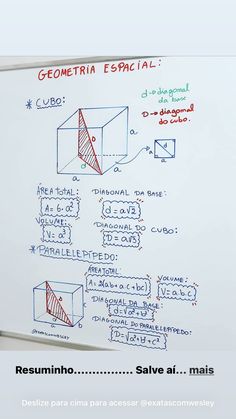 GEOMETRIA ESPACIAL:
* CUBO:
d→diagonal da base
D→diagonal do cubo.
D
d
a
a
a
a
d
a
ÁREA TOTAL:
A = 6·a²
DIAGONAL DA BASE:
d = a√2
VOLUME:
V = a³
DIAGONAL DO CUBO:
D = a√3
* PARALELEPÍPEDO:
ÁREA TOTAL:
A = 2(ab+ac+bc)
VOLUME:
V = a.b.c
DIAGONAL DA BASE:
d = √a²+b²
DIAGONAL DO PARALELEPÍPEDO:
D = √a²+b²+c²
@exatascomwesley
Resuminho................ Salve aí... mais
Deslize para cima para acessar @exatascomwesley